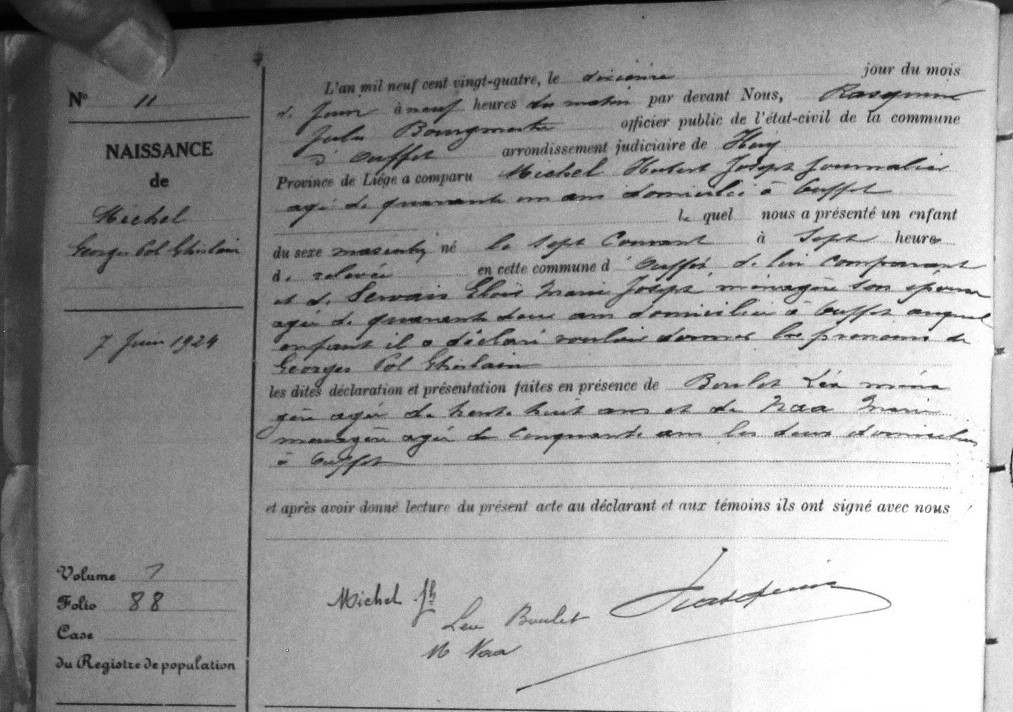 N° 11
NAISSANCE
de
Michel
Georges Pol Ghislain
7 Juin 1924
Volume 7
Folio 88
Case
du Registre de population
L'an mil neuf cent vingt-quatre, le dixième jour du mois
d Juin à neuf heures du matin par devant Nous, Rasquinne
Jules Bourgmestre officier public de l'état-civil de la commune
d' Ouffet arrondissement judiciaire de Huy
Province de Liége a comparu Michel Hubert Joseph Journalier
agé de quarante un ans domicilié à Ouffet
le quel nous a présenté un enfant
du sexe masculin né le sept Courant à sept heures
de relevée en cette commune d' Ouffet, de lui Comparant
et de Servais Marie Joseph ménagère son épouse
agée de quarante deux ans domiciliée à Ouffet auquel
enfant il a déclaré vouloir donner les prénoms de
Georges Pol Ghislain
les dites déclaration et présentation faites en présence de Boulet Léa ména
gère agée de trente huit ans et de Naa Marie
ménagère agée de cinquante ans les deux domiciliées
à Ouffet
et après avoir donné lecture du présent acte au déclarant et aux témoins ils ont signé avec nous
Michel Jh
Lea Boulet
M Naa